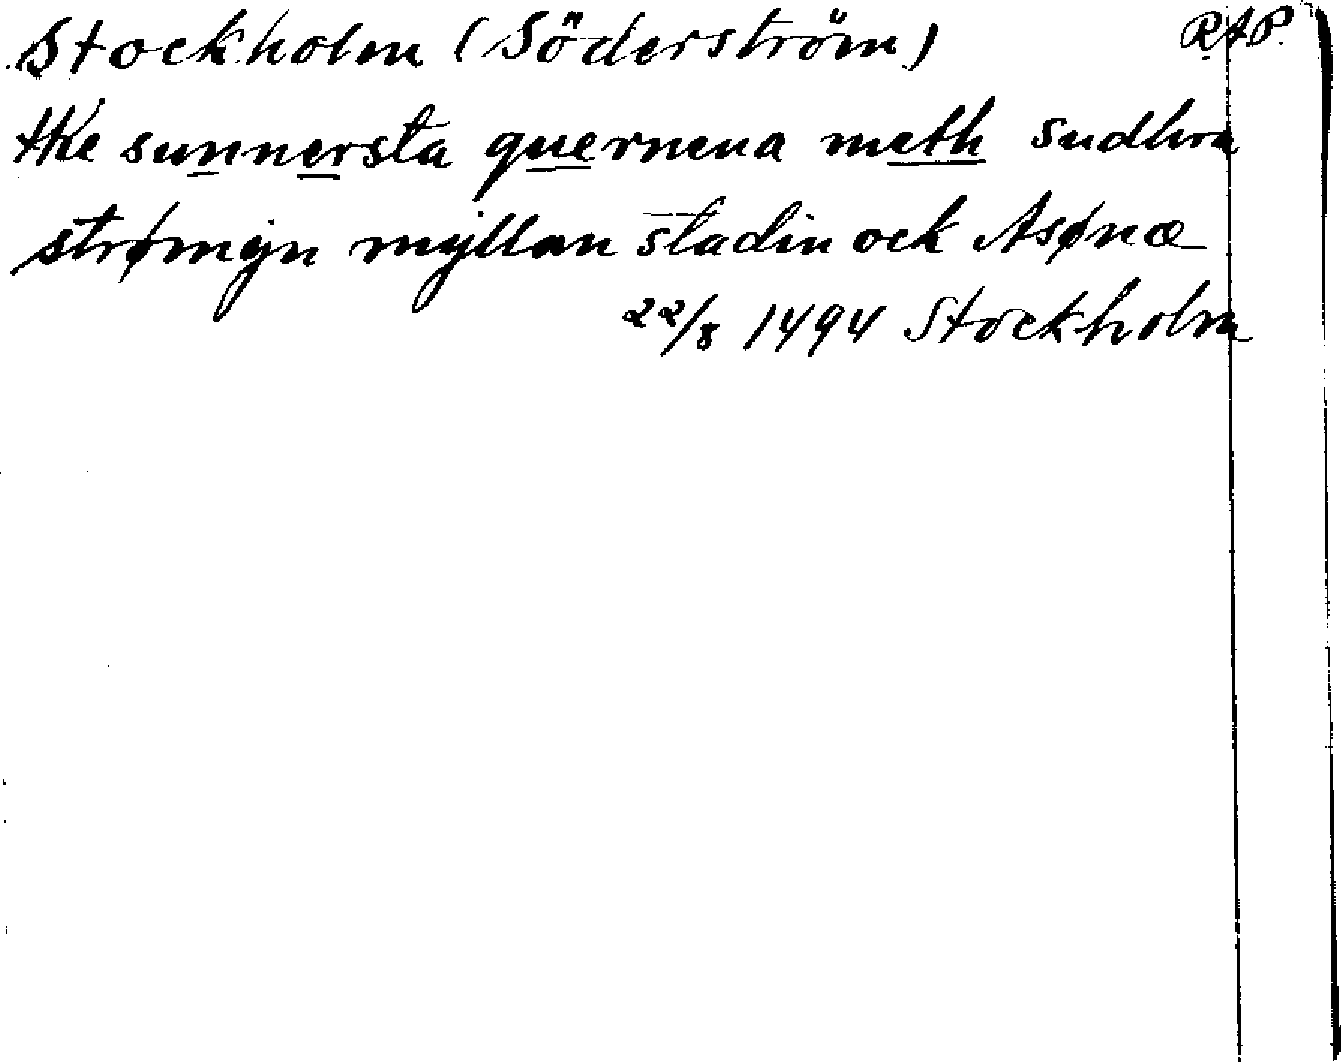 Stockholm (Söderström) RAP.
the sunnersta quernena meth sudhra
strømÿn mÿllan stadin ock Asønæ
22/8 1494 Stockholm